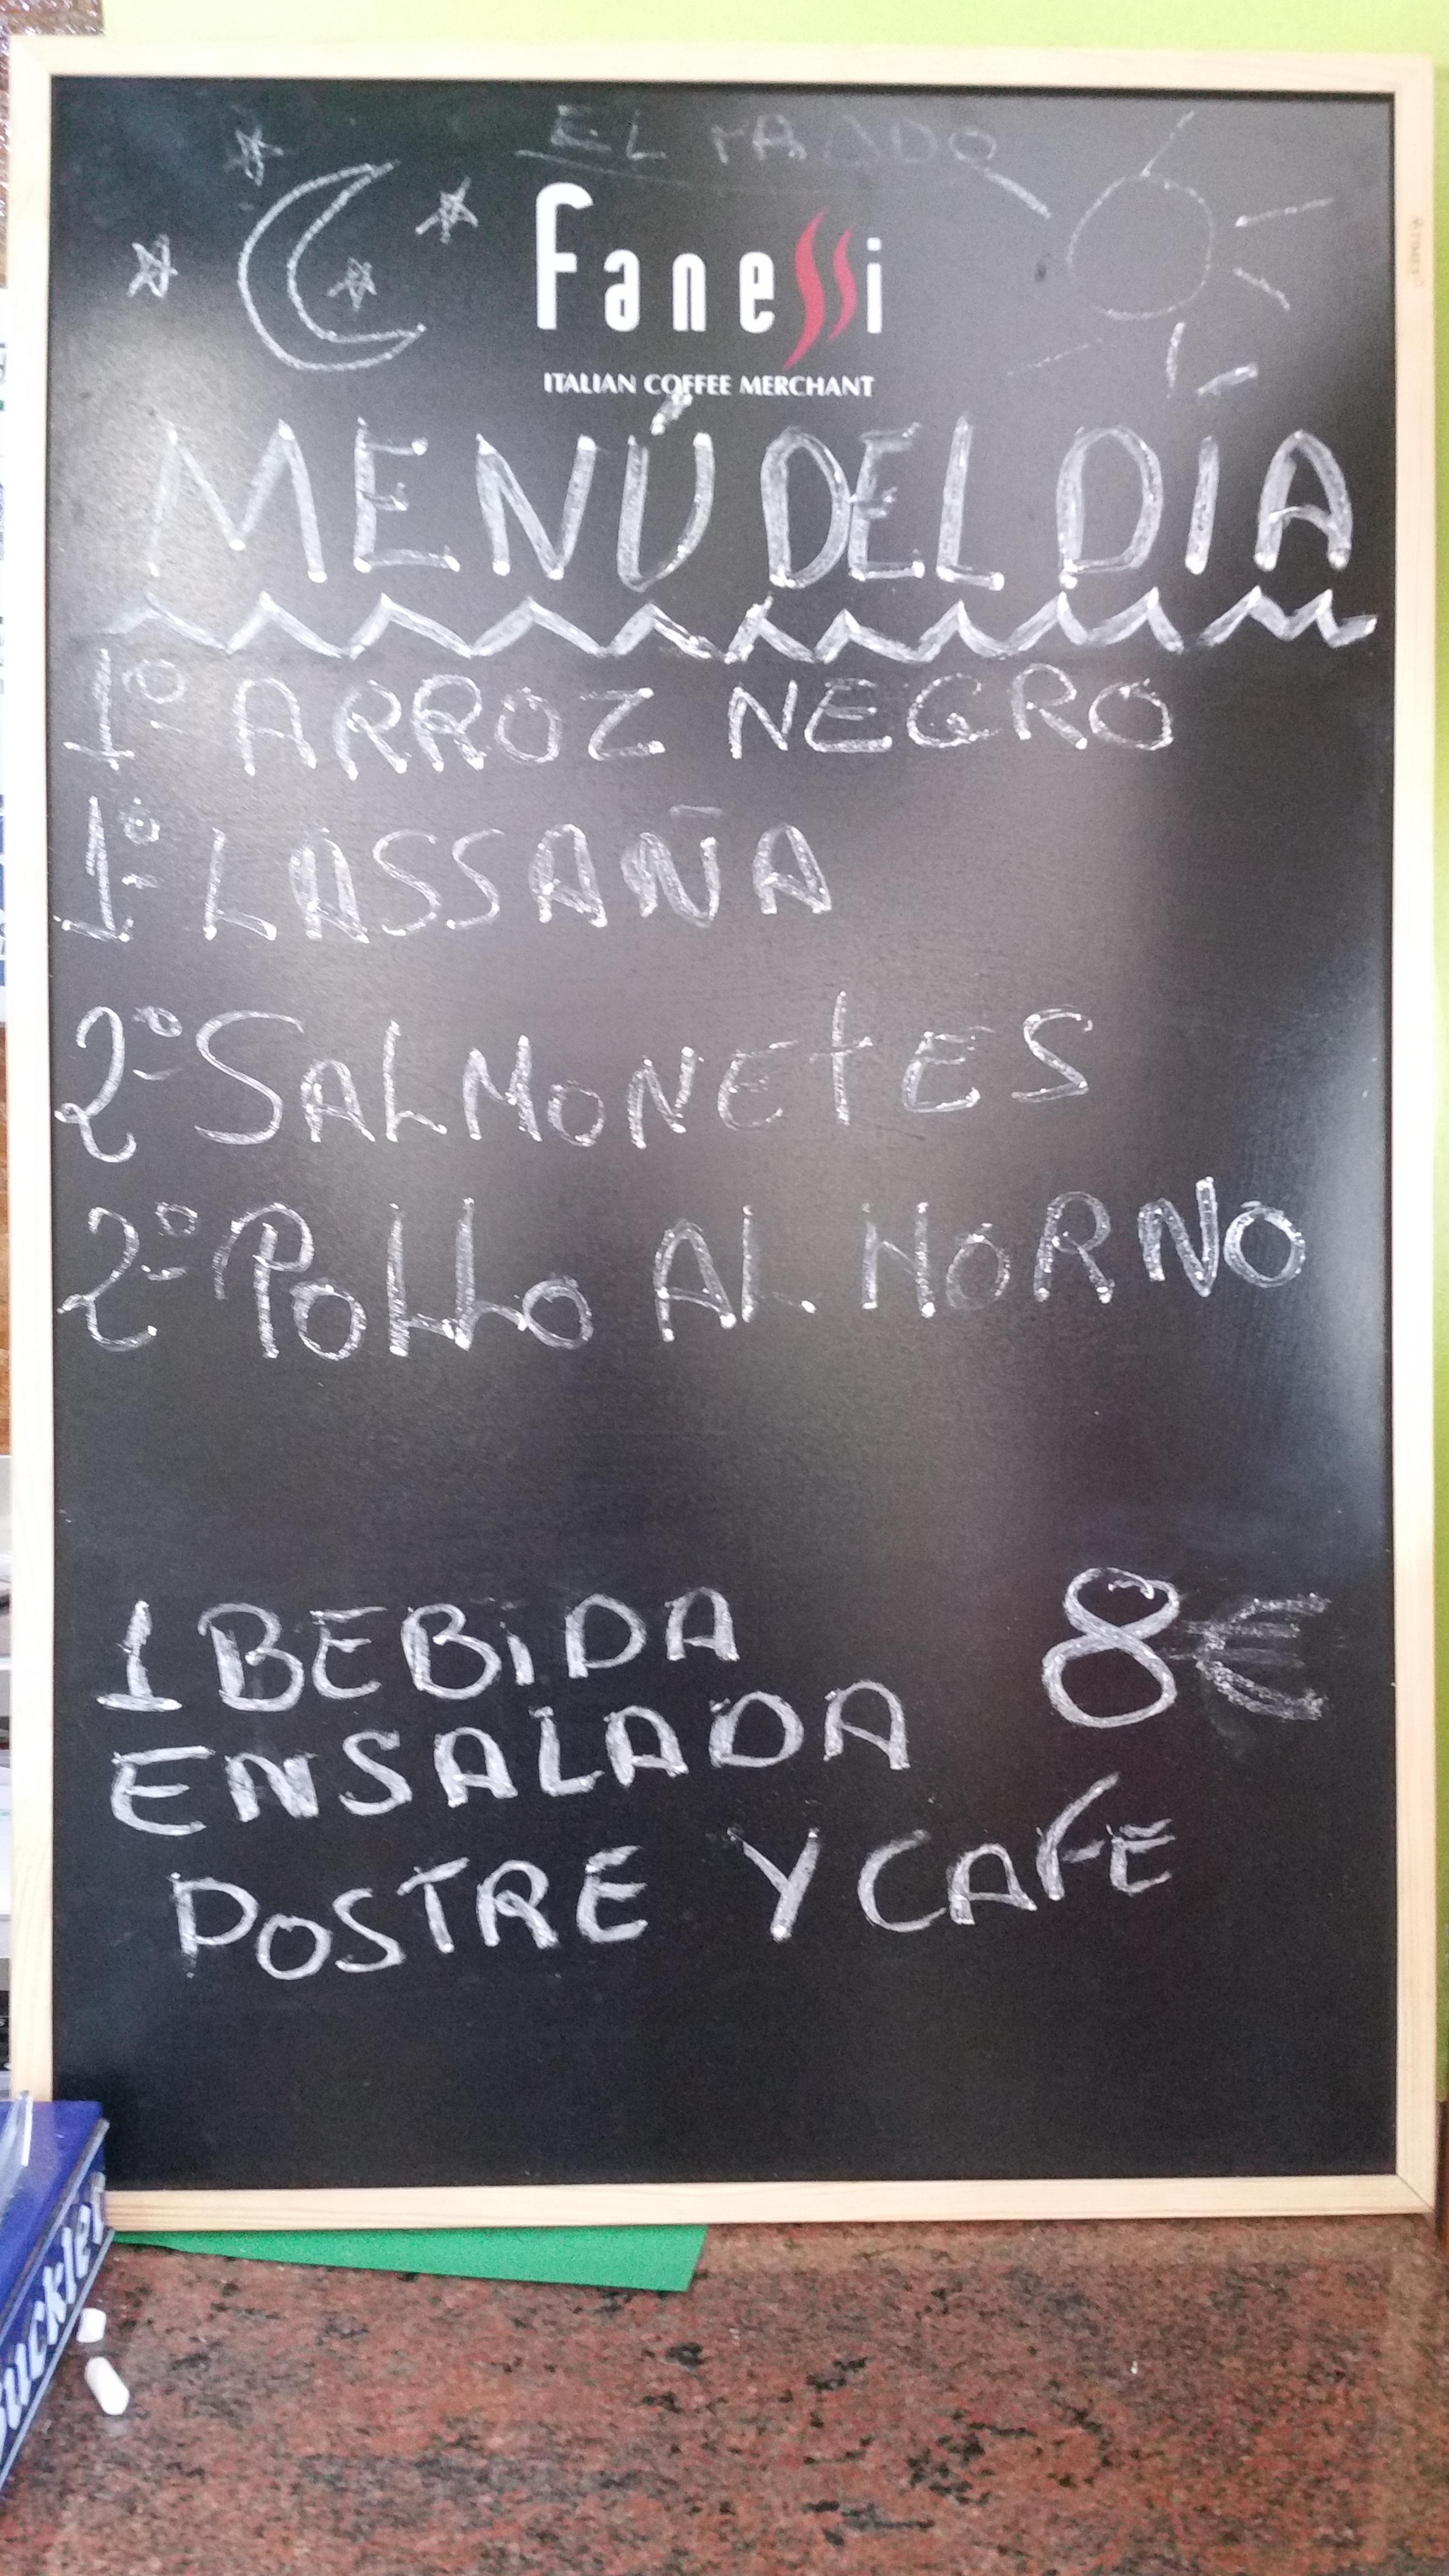 EL
Fanessi
ITALIAN COFFEE MERCHANT
MENÚ DEL DIA
1º ARROZ NEGRO
1º LASSAÑA
2º SALMONETES
2º POLLO AL HORNO
1 BEBIDA 8€
ENSALADA
POSTRE Y CAFE